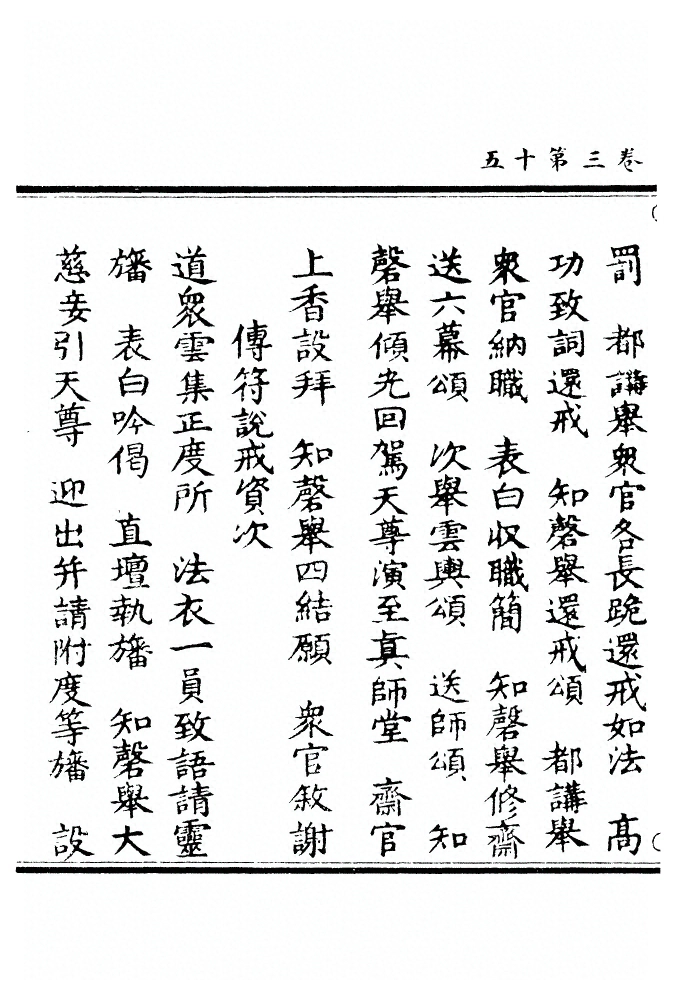 五十第三卷
罰　都講舉衆官各長跪還戒如法　高
功致詞還戒　知磬舉還戒頌　都講舉
衆官納職　表白收職簡　知磬舉修齋
送六幕頌　次舉雲輿頌　送師頌　知
磬舉傾光回駕天尊演至真師堂　齋官
上香設拜　知磬舉四結願　衆官敘謝
傳符說戒資次
道衆雲集正度所　法衣一員致語請靈
旛　表白吟偈　直壇執旛　知磬舉大
慈妾引天尊　迎出并請附度等旛　設